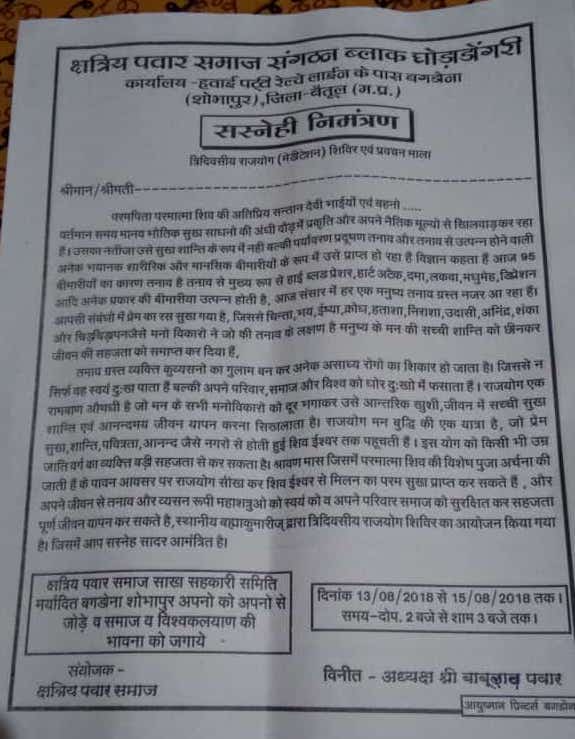 क्षत्रिय पवार समाज संगठन ब्लाक घोड़ाडोंगरी
कार्यालय -हवाई पट्टी रेल्वे लाईन के पास बगडोना
(शोभापुर),जिला-बैतूल (म.प्र.)
सस्नेही निमंत्रण
त्रिदिवसीय राजयोग (मेडीटेशन) शिविर एवं प्रवचन माला
श्रीमान/श्रीमती-----------------------------------------------
परमपिता परमात्मा शिव की अतिप्रिय सन्तान देवी भाईयों एवं बहनो .....
वर्तमान समय मानव भौतिक सुख साधनो की अंधी दौड़ में प्रकृति और अपने नैतिक मूल्यो से खिलवाड़ कर रहा
है। उसका नतीजा उसे सुख शान्ति के रूप में नही बल्की पर्यावरण प्रदूषण तनाव और तनाव से उत्पन्न होने वाली
अनेक भयानक शारीरिक और मानसिक बीमारीयों के रूप में उसे प्राप्त हो रहा है विज्ञान कहता हैं आज 95
बीमारीयों का कारण तनाव है तनाव से मुख्य रूप से हाई ब्लड प्रेशर,हार्ट अटेक,दमा,लकवा,मधुमेह,डिप्रेशन
आदि अनेक प्रकार की बीमारीया उत्पन्न होती है, आज संसार में हर एक मनुष्य तनाव ग्रस्त नजर आ रहा हैं।
आपसी संबंधो में प्रेम का रस सुख गया है, जिससे चिन्ता,भय,ईष्या,क्रोध,हताशा,निराशा,उदासी,अनिंद्र,शंका
और चिड़चिड़पनजैसे मनो विकारो ने जो की तनाव के लक्षण है मनुष्य के मन की सच्ची शान्ति को छीनकर
जीवन की सहजता को समाप्त कर दिया हैं,
तनाव ग्रस्त व्यक्ति कुव्यसनो का गुलाम बन कर अनेक असाध्य रोगों का शिकार हो जाता है। जिससे न
सिर्फ वह स्वयं दुःख पाता हैं बल्की अपने परिवार,समाज और विश्व को घोर दुःखो में फसाता हैं। राजयोग एक
रामबाण औषधी है जो मन के सभी मनोविकारो को दूर भगाकर उसे आन्तरिक खुशी,जीवन में सच्ची सुख
शान्ति एवं आनन्दमय जीवन यापन करना सिखलाता है। राजयोग मन बुद्धि की एक यात्रा है, जो प्रेम
सुख,शान्ति,पवित्रता,आनन्द जैसे नगरो से होती हुई शिव ईश्वर तक पहूचती हैं। इस योग को किसी भी उम्र
जाति वर्ग का व्यक्ति बड़ी सहजता से कर सकता है। श्रावण मास जिसमें परमात्मा शिव की विशेष पुजा अर्चना की
जाती हैं के पावन आवसर पर राजयोग सीख कर शिव ईश्वर से मिलन का परम सुख प्राप्त कर सकते हैं , और
अपने जीवन से तनाव और व्यसन रूपी महाशत्रुओ को स्वयं को व अपने परिवार समाज को सुरक्षित कर सहजता
पूर्ण जीवन यापन कर सकते है,स्थानीय ब्रह्माकुमारीज् द्वारा त्रिदिवसीय राजयोग शिविर का आयोजन किया गया
है। जिसमें आप सस्नेह सादर आमंत्रित है।
क्षत्रिय पवार समाज साख सहकारी समिति
मर्यादित बगडोना शोभापुर अपनो को अपनो से
जोड़े व समाज व विश्वकलयाण की
भावना को जगाये
दिनांक 13/08/2018 से 15/08/2018 तक।
समय-दोप. 2 बजे से शाम 3 बजे तक।
संयोजक -
क्षत्रिय पवार समाज
विनीत - अध्यक्ष श्री बाबूलाल पवार
आयुष्मान प्रिन्टर्स बगडोना